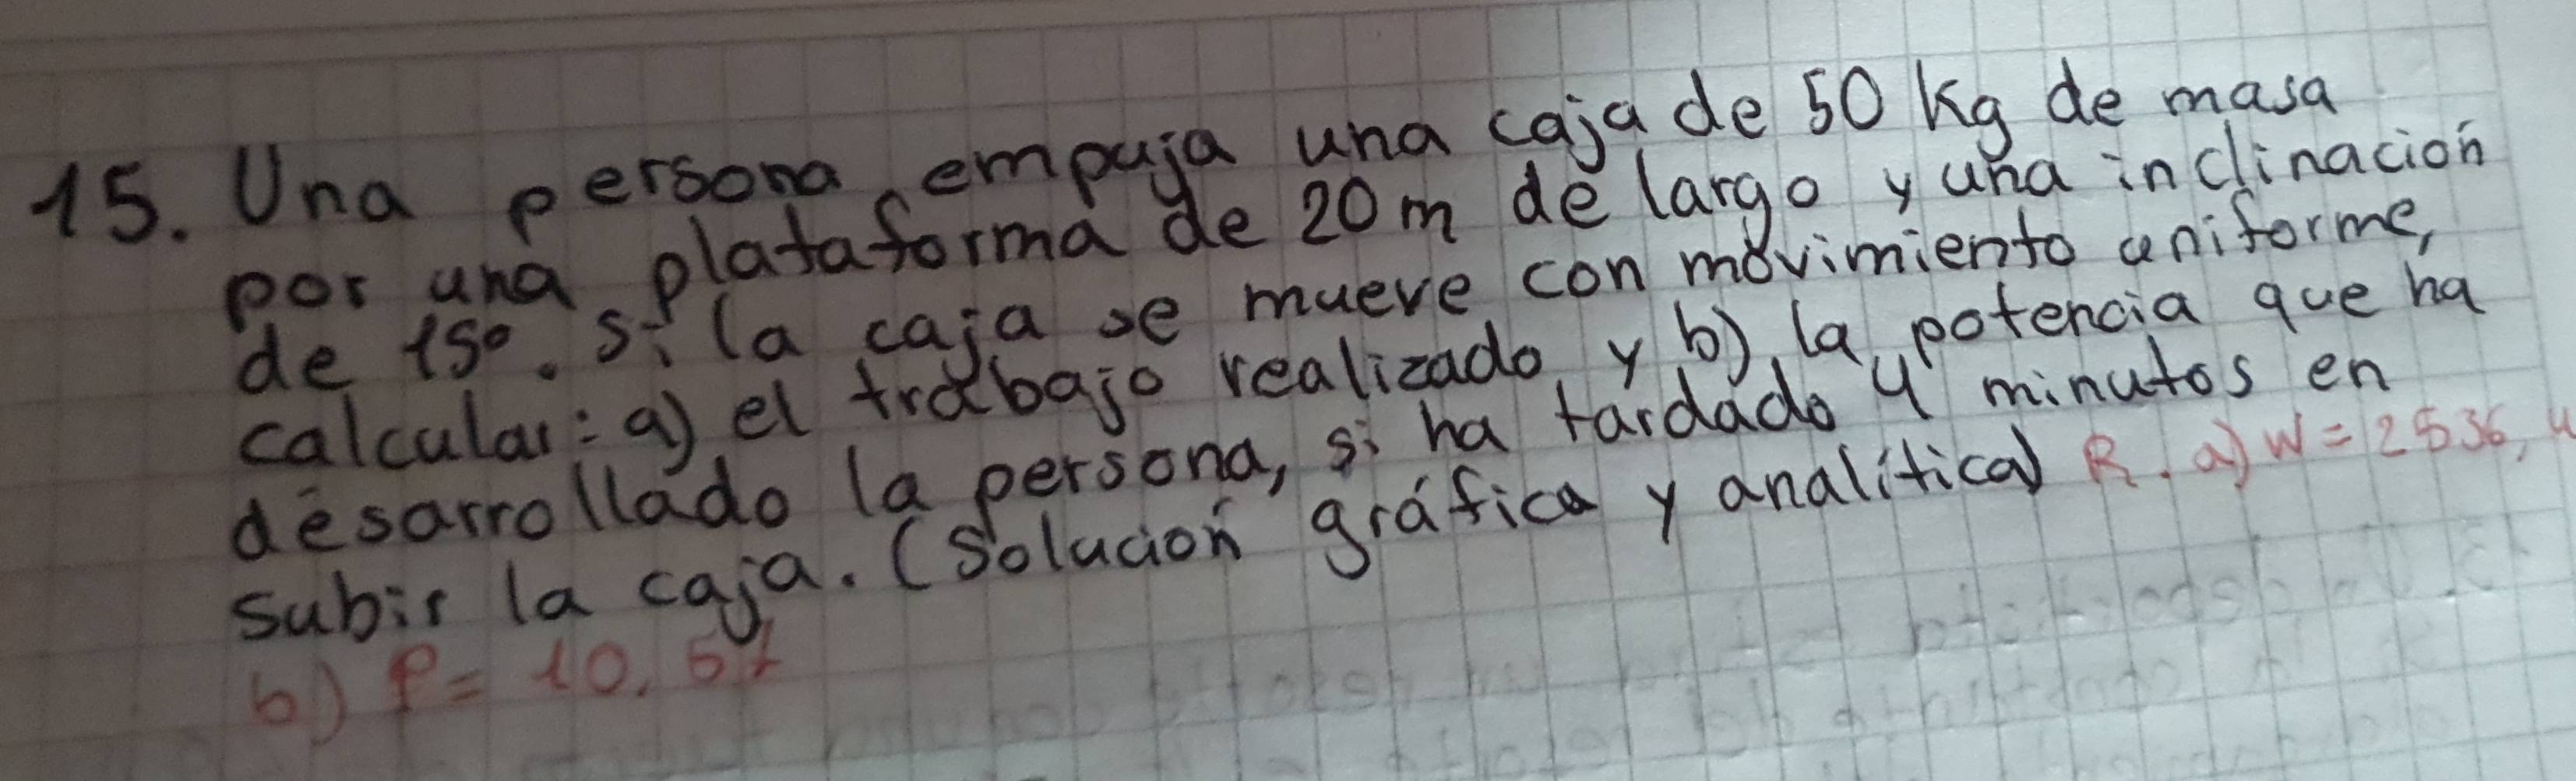 15. Una persona empuja una caja de 50 Kg de masa
por una plataforma de 20 m de largo y una inclinación
de 15°. Si la caja se mueve con movimiento uniforme,
calcular: a) el trabajo realizado y b) la potencia que ha
desarrollado la persona, si ha tardado 4 minutos en
subir la caja. (Solución gráfica y analítica) R. a) W = 2536, 4
b) P = 10.57